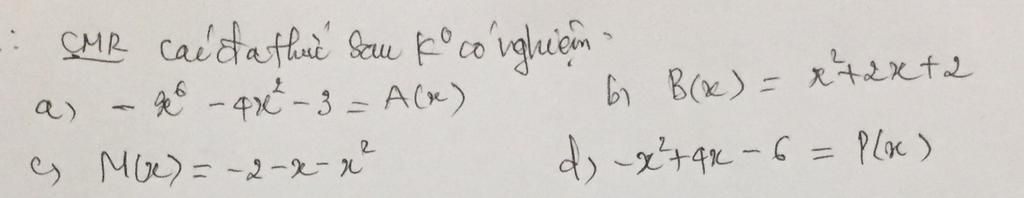 : CMR các đa thức sau K⁰ có nghiệm.
a) - x⁶ - 4x² - 3 = A(x) b) B(x) = x² + 2x + 2
c) M(x) = -2 - x - x² d) -x² + 4x - 6 = P(x)